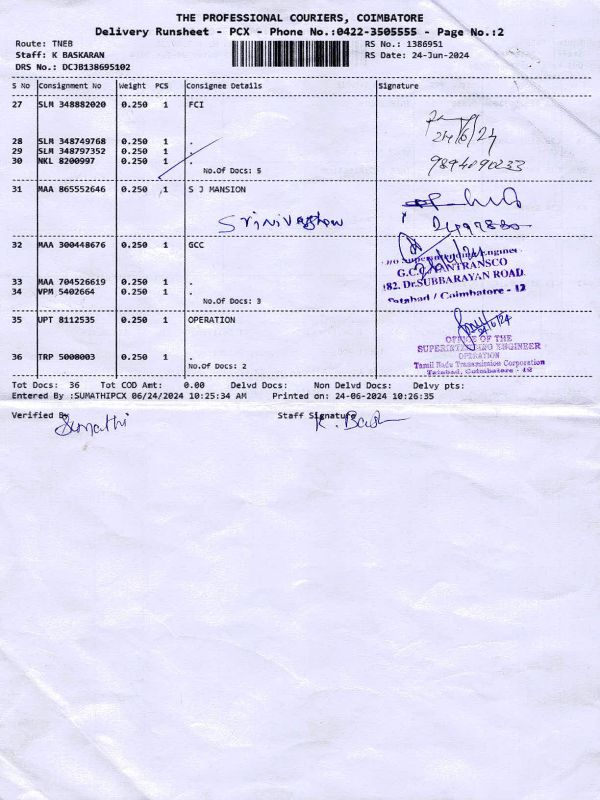 THE PROFESSIONAL COURIERS, COIMBATORE
Delivery Runsheet - PCX - Phone No.:0422-3505555 - Page No.:2
Route: TNEB RS No.: 1386951
Staff: K BASKARAN RS Date: 24-Jun-2024
DRS No.: DCJB138695102
S No Consignment No Weight PCS Consignee Details Signature
27 SLM 348882020 0.250 1 FCI
24/6/24
28 SLM 348749768 0.250 1 .
29 SLM 348797352 0.250 1 .
30 NKL 8200997 0.250 1 .
No.Of Docs: 5
31 MAA 865552646 0.250 1 S J MANSION
32 MAA 300448676 0.250 1 GCC
G.C.C./TANTRANSCO
182. Dr.SUBBARAYAN ROAD.
Tatabad / Coimbatore - 12
33 MAA 704526619 0.250 1 .
34 VPM 5402664 0.250 1 .
No.Of Docs: 3
35 UPT 8112535 0.250 1 OPERATION
24/6/24
OFFICE OF THE
SUPERINTENDING ENGINEER
OPERATION
Tamil Nadu Transmission Corporation
Tatabad, Coimbatore - 12
36 TRP 5008003 0.250 1 .
No.Of Docs: 2
Tot Docs: 36 Tot COD Amt: 0.00 Delvd Docs: Non Delvd Docs: Delvy pts:
Entered By :SUMATHIPCX 06/24/2024 10:25:34 AM Printed on: 24-06-2024 10:26:35
Verified By Staff Signature
Sumathi K. Bask